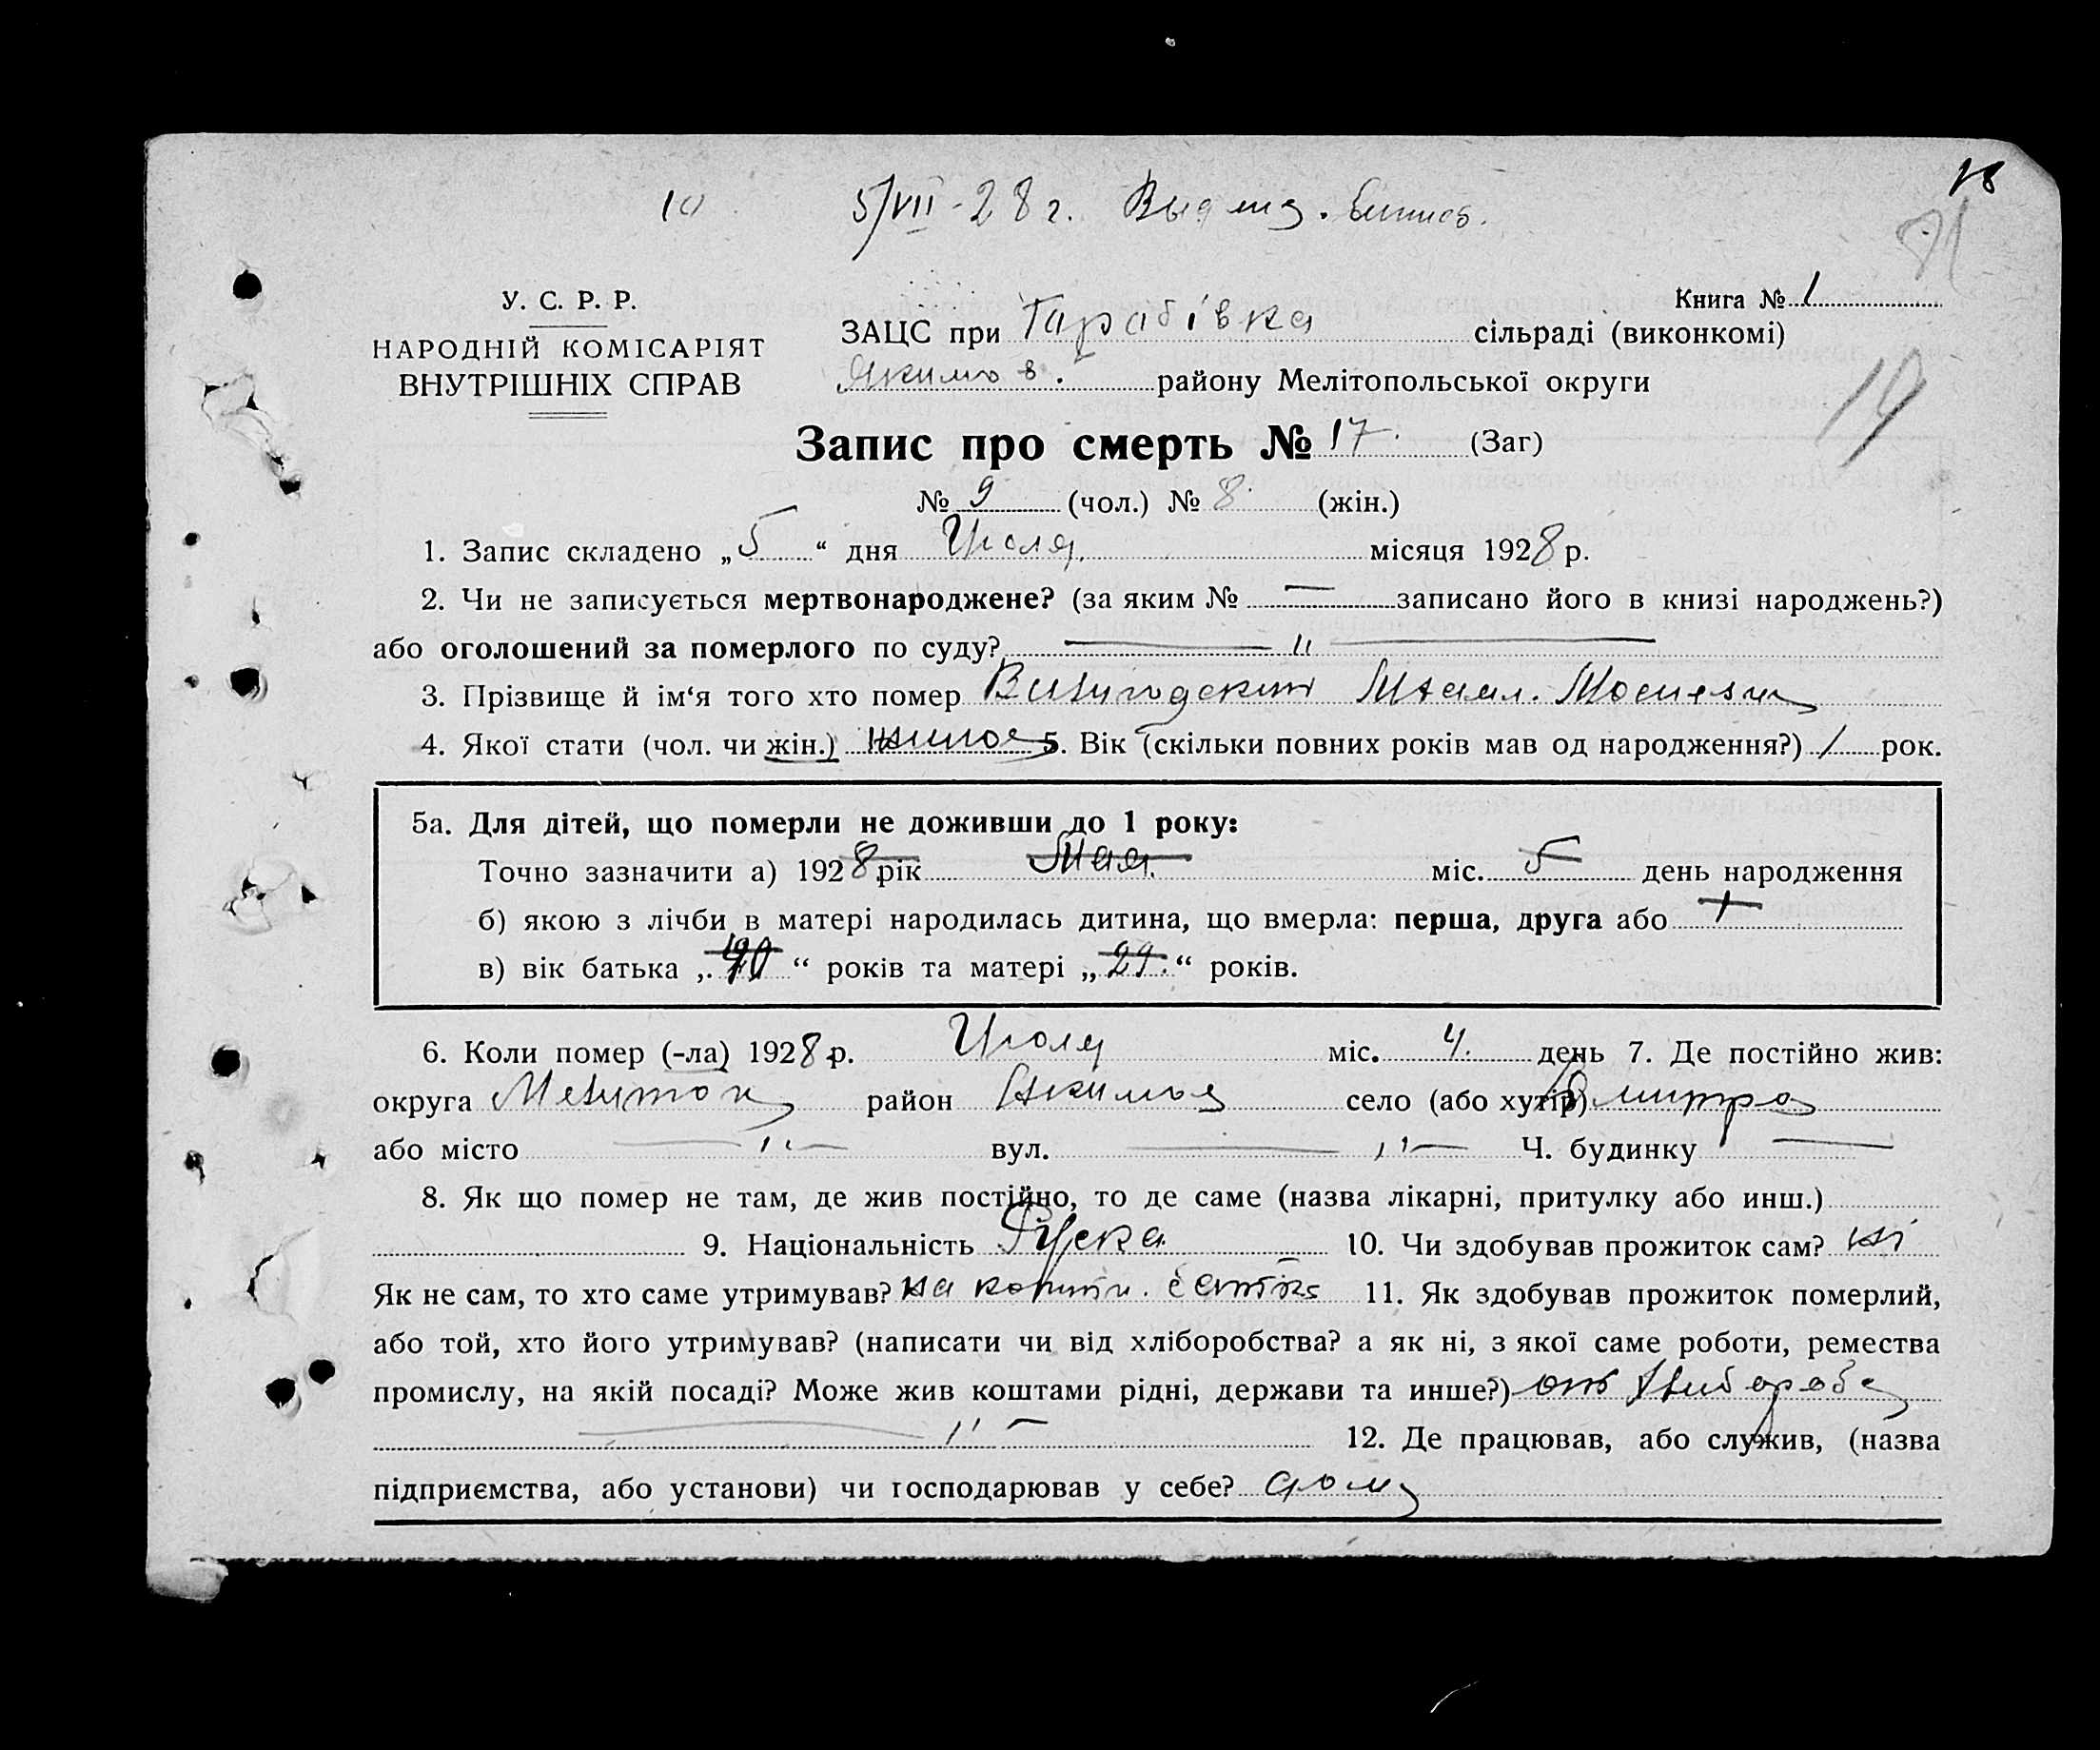 18
10 5/VII-28 г.
81
У. С. Р. Р.
Книга № 1
НАРОДНІЙ КОМІСАРІЯТ
ВНУТРІШНІХ СПРАВ
ЗАЦС при сільраді (виконкомі)
Якимов. району Мелітопольської округи
19
Запис про смерть № 17. (Заг)
№ 9 (чол.) № 8 (жін.)
1. Запис складено „5“ дня Июля місяця 1928 р.
2. Чи не записується мертвонароджене? (за яким № — записано його в книзі народжень?)
або оголошений за померлого по суду? — " —
3. Прізвище й ім‘я того хто помер
4. Якої стати (чол. чи жін.) 5. Вік (скільки повних років мав од народження?) 1 рок.
5а. Для дітей, що померли не доживши до 1 року:
Точно зазначити а) 1928 рік Мая. міс. 5 день народження
б) якою з лічби в матері народилась дитина, що вмерла: перша, друга або
в) вік батька „ “ років та матері „29.“ років.
6. Коли помер (-ла) 1928 р. Июля міс. 4. день 7. Де постійно жив:
округа Мелитоп район Акимов село (або хутір)
або місто — " — вул. — " — Ч. будинку —
8. Як що помер не там, де жив постійно, то де саме (назва лікарні, притулку або инш.)
9. Національність Руска 10. Чи здобував прожиток сам? ні
Як не сам, то хто саме утримував? на 11. Як здобував прожиток померлий,
або той, хто його утримував? (написати чи від хліборобства? а як ні, з якої саме роботи, ремества
промислу, на якій посаді? Може жив коштами рідні, держави та инше?) от
— " — 12. Де працював, або служив, (назва
підприємства, або установи) чи господарював у себе? дому